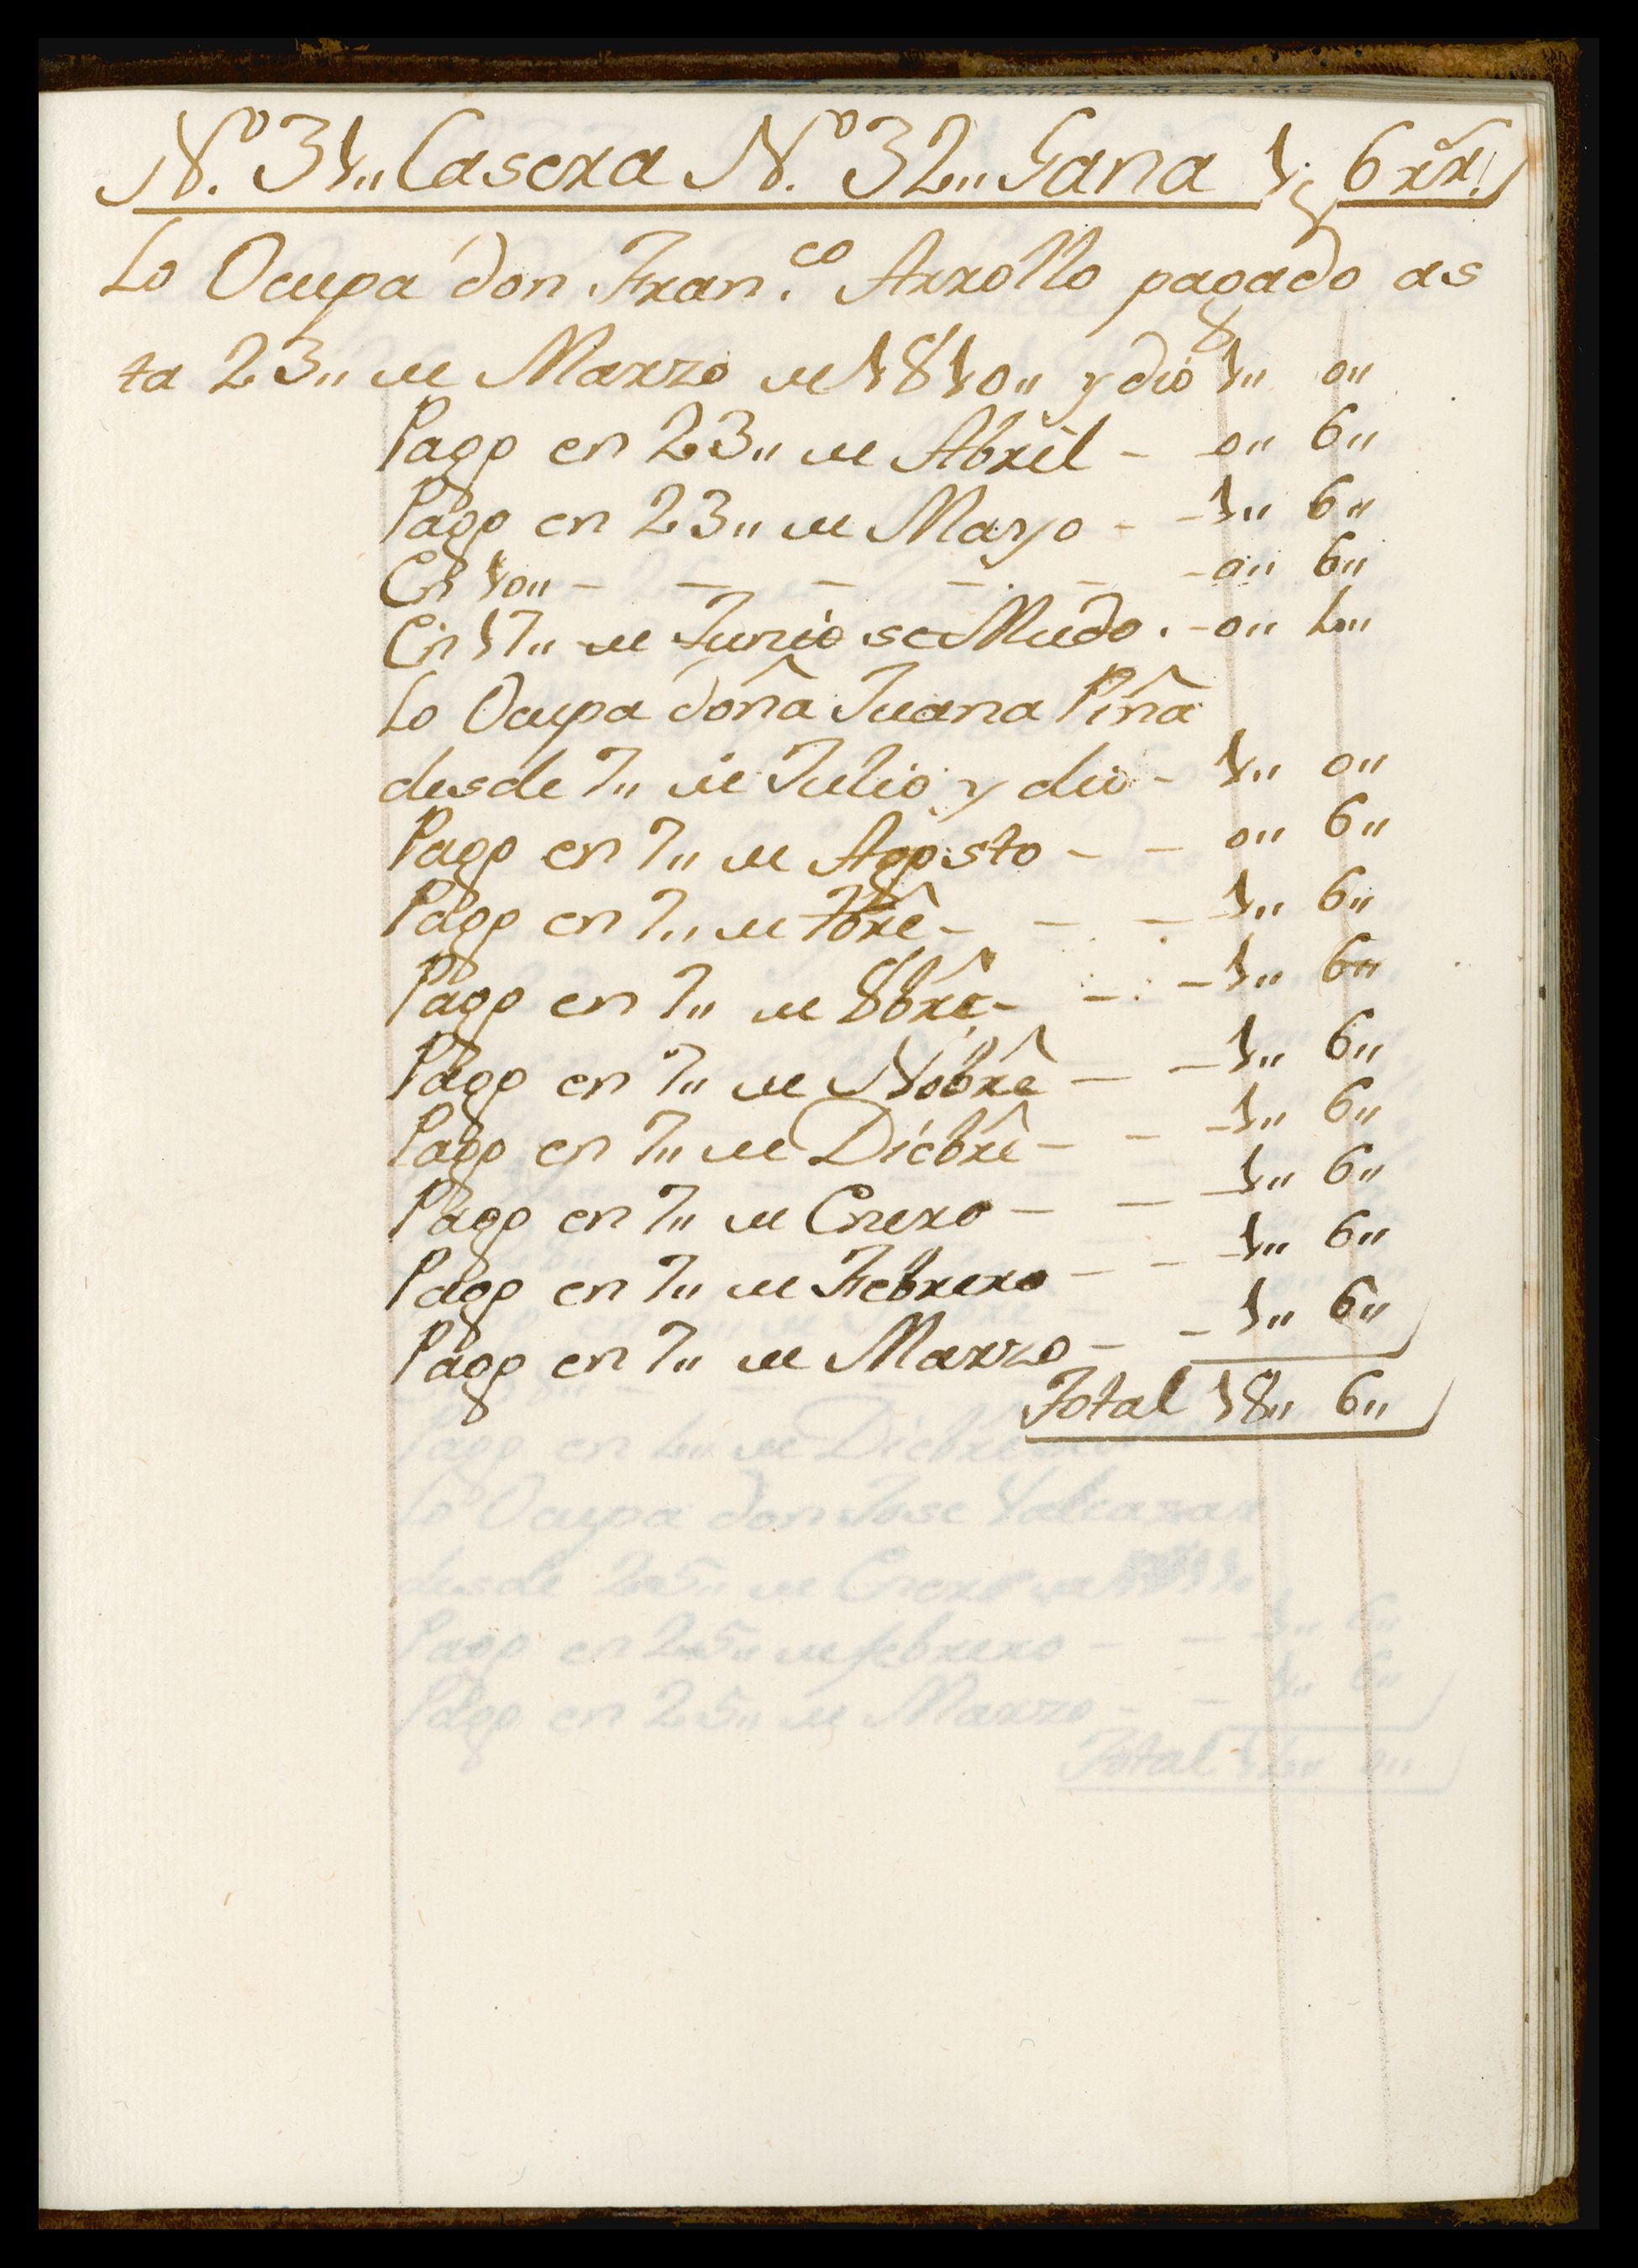 N.º 31,, Casera N.º 32,, Gana 1,, 6 rr.ˢ
Lo Ocupa don Fran.ᶜᵒ Arrollo pagado as
ta 23,, de Marzo de 1810,, y dio 1,, 0,,
Pago en 23,, de Abril - 0,, 6,,
Pago en 23,, de Mayo - - 1,, 6,,
En 10,, - - - - - - 0,, 6,,
En 17,, de Junio se Mudo. - 0,, 4,,
Lo Ocupa doña Juana Piña
desde 7,, de Julio y dio - 1,, 0,,
Pago en 7,, de Agosto - - 0,, 6,,
Pago en 7,, de 7brê - - - 1,, 6,,
Pago en 7,, de 8brê - - - 1,, 6,,
Pago en 7,, de Nobrê - - 1,, 6,,
Pago en 7,, de Dicbrê - - - 1,, 6,,
Pago en 7,, de Enero - - - 1,, 6,,
Pago en 7,, de Febrero - - - 1,, 6,,
Pago en 7,, de Marzo - - 1,, 6,,
Total 18,, 6,,